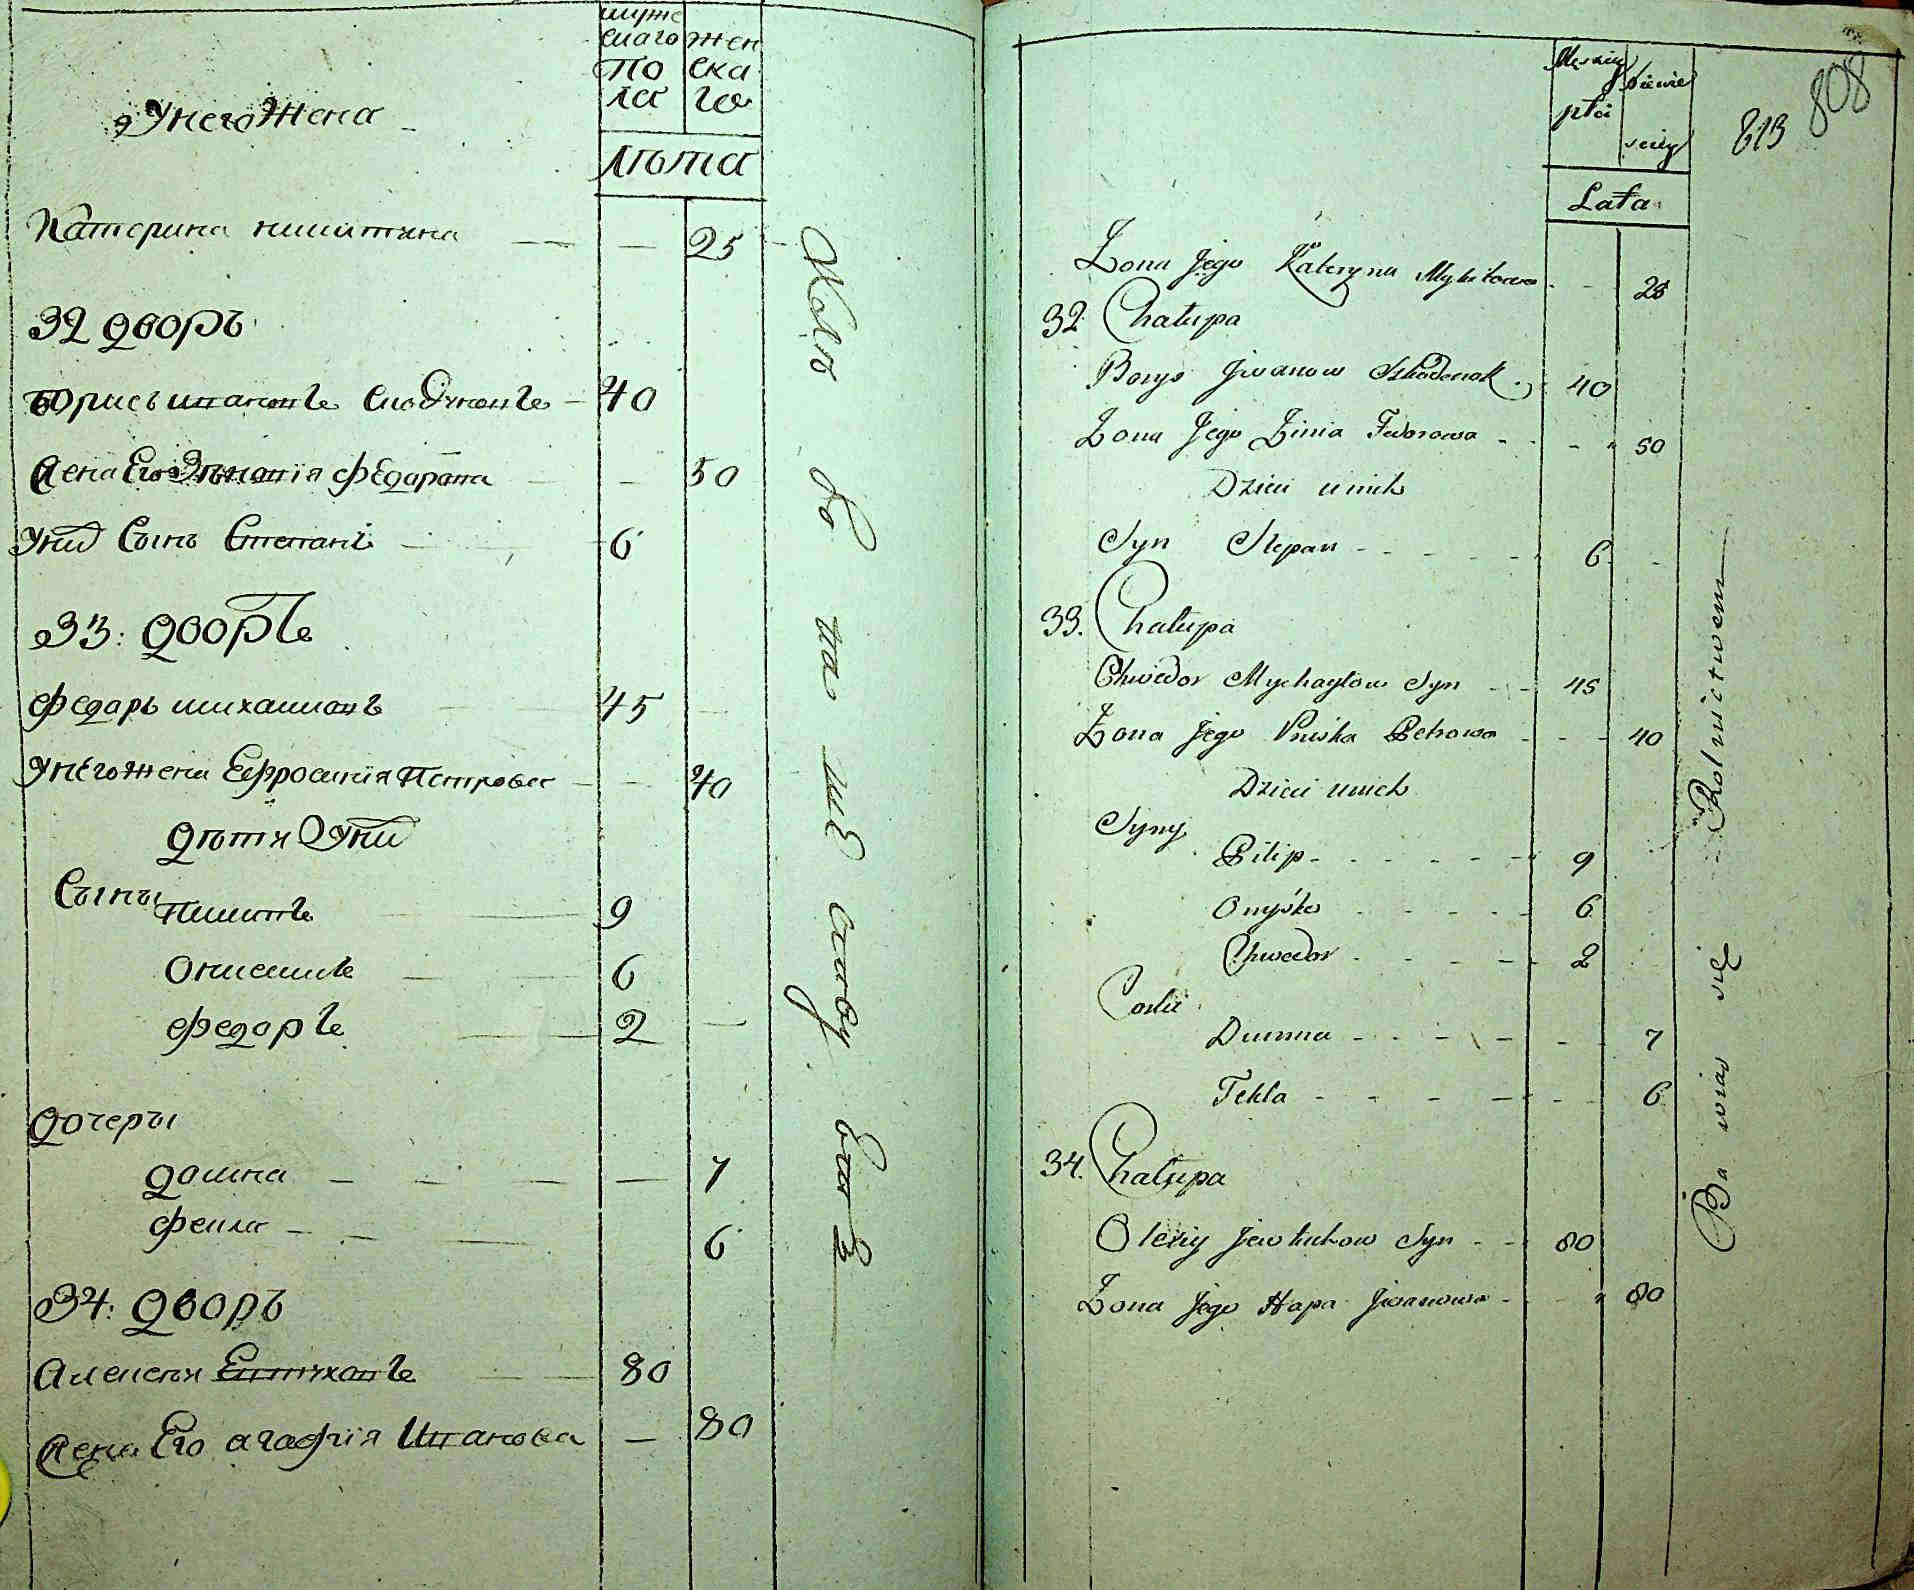 муже
скаго
по
ла
жен
ска
го
Унего Жена
Лѣта
Катерина никитина — — — 25
32 дворъ
Борисъ ивановъ — 40
Жена Его Зѣновія федарова — — 50
Уних Сынъ Степанъ — 6
33: дворъ
федаръ михаиловъ — 45
Унего жена Ефросинія Петрова — — 40
дѣтя Уних
Сыны
Пилипъ — 9
Онисимъ — 6
федоръ — 2 —
дочеры
домна — — — — — 7
фекла — — — 6
34: дворъ
Алексѣй Евтуховъ — 80
Жена Его агафия Иванова — 80
Męskiej
płci
Niewie
sciey
813
808
Lata
Żona Jego Kateryna Mykitowa - - 25
32 Chałupa
Borys Jwanow - 40
Żona Jego Zinia Fedorowa - - - 50
Dzieci unich
Syn Stepan - - - - - - 6
33. Chałupa
Chwedor Mychayłow Syn - - 45
Żona Jego Pryska Petrowa - - - 40
Dzieci unich
Syny
Pilip - - - - - - 9
Onyśko - - - - - 6
Chwedor - - - - - 2
Corki
Dumna - - - - - - - 7
Tekla - - - - - - - 6
34. Chałupa
Olexiy Jewtuchow Syn - - 80
Żona Jego Hapa Jwanowa - - 80
Ba wias się - - Rolnictwem